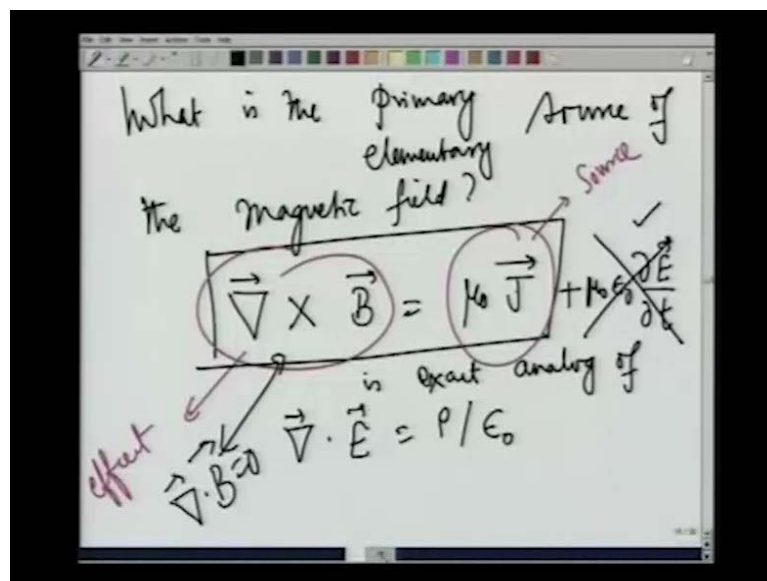 What is the Primary source of
elementary
the magnetic field?
source
∇⃗ × B⃗ = μ₀ J⃗ + μ₀ ε₀ ∂E⃗/∂t
is exact analog of
effect
∇⃗ · B⃗ = 0
∇⃗ · E⃗ = ρ / ε₀